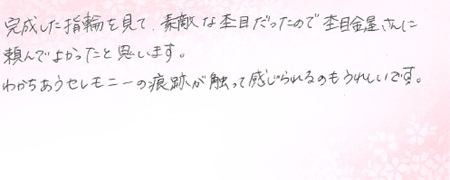 完成した指輪を見て、素敵な杢目だったので杢目金屋さんに
頼んでよかったと思います。
わかちあうセレモニーの痕跡が触って感じられるのもうれしいです。